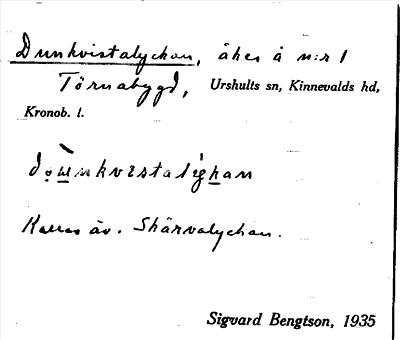 Dunkvistalyckan, åker å n:r 1
Törnabygd, Urshults sn, Kinnevalds hd,
Kronob. l.
Kallas äv. Skärvalyckan.
Sigvard Bengtson, 1935